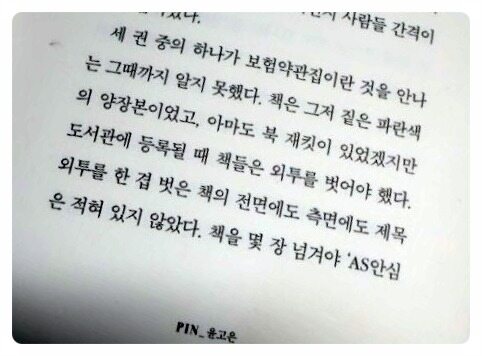 사람들 간격이
세 권 중의 하나가 보험약관집이란 것을 안나
는 그때까지 알지 못했다. 책은 그저 짙은 파란색
의 양장본이었고, 아마도 북 재킷이 있었겠지만
도서관에 등록될 때 책들은 외투를 벗어야 했다.
외투를 한 겹 벗은 책의 전면에도 측면에도 제목
은 적혀 있지 않았다. 책을 몇 장 넘겨야 'AS안심
PIN_윤고은